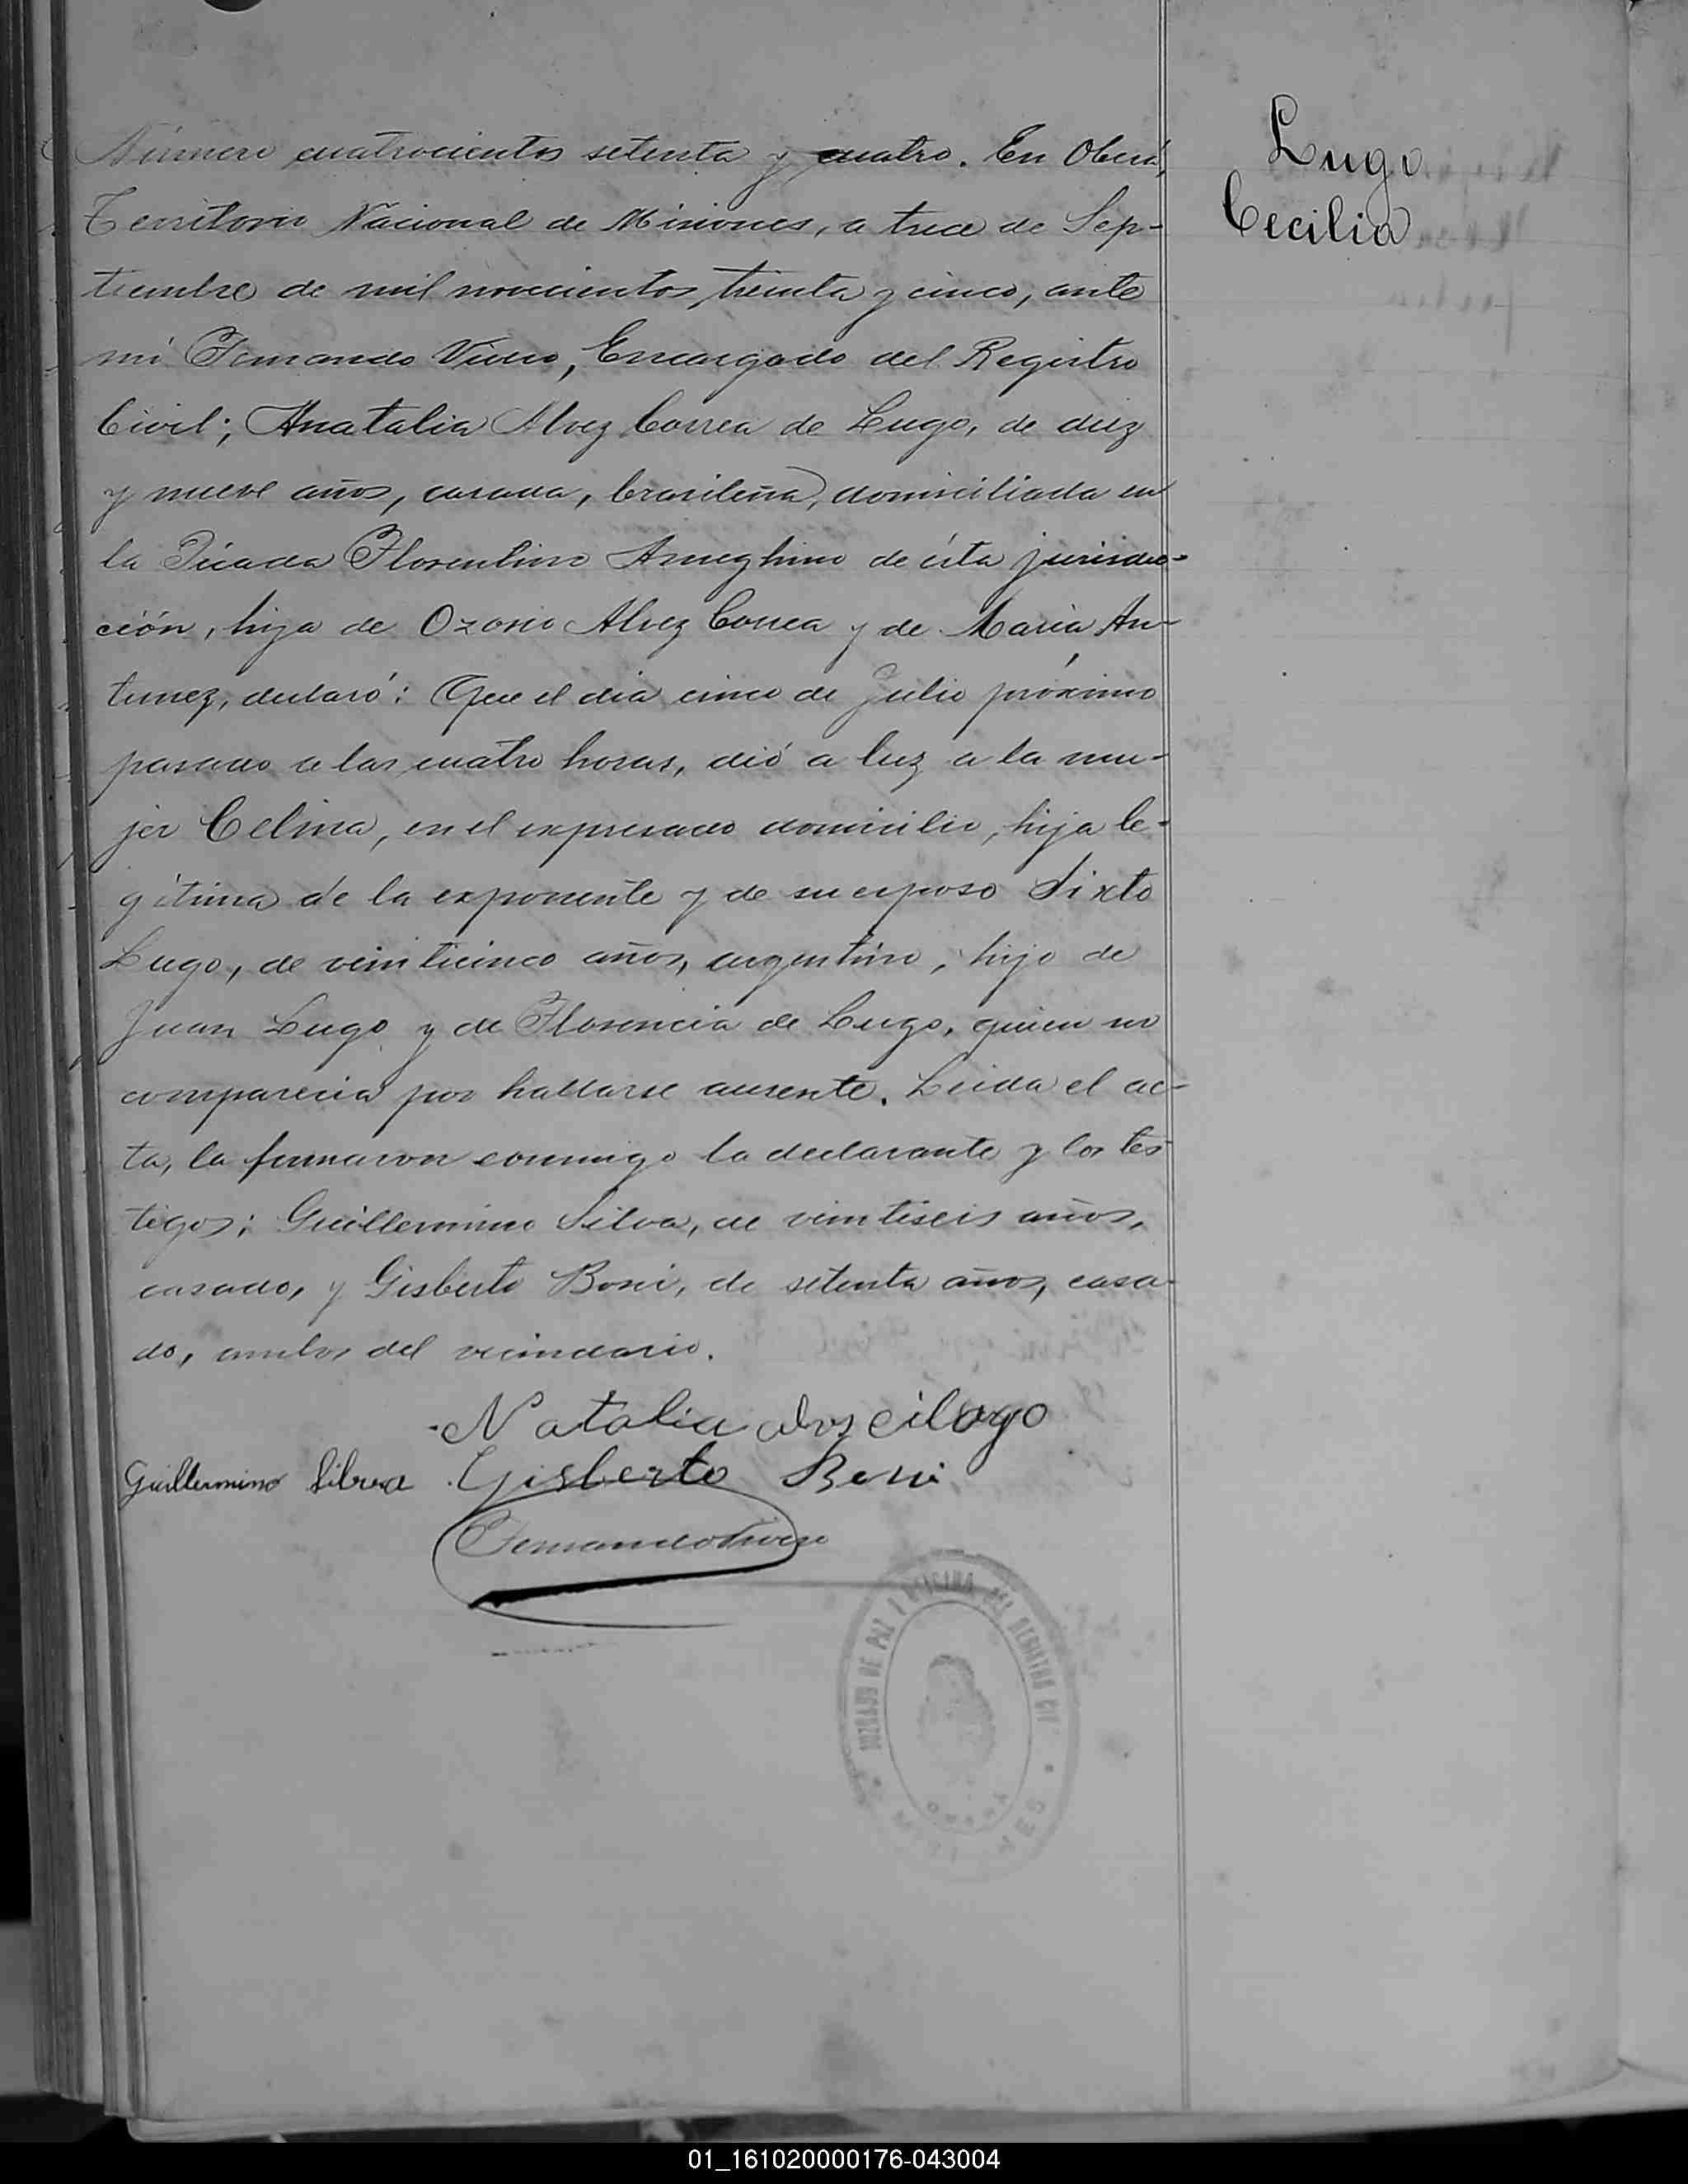 Número cuatrocientos setenta y cuatro. En Oberá,
Territorio Nacional de Misiones, a trece de Sep-
tiembre de mil novecientos treinta y cinco, ante
mi Fernando Vivero, Encargado del Registro
Civil; Anatalia Alvez Correa de Lugo, de diez
y nueve años, casada, brasileña, domiciliada en
la Picada Florentino Ameghino de ésta jurisdic-
ción, hija de Ozorio Alvez Correa y de María An-
tunez, declaró: Que el día cinco de Julio próximo
pasado a las cuatro horas, dió a luz a la mu-
jer Celina, en el expresado domicilio, hija le-
gítima de la exponente y de su esposo Sixto
Lugo, de veinticinco años, argentino, hijo de
Juan Lugo y de Florencia de Lugo, quien no
comparecia por hallarse ausente. Leida el ac-
ta, la firmaron conmigo la declarante y los tes
tigos; Guillermino Silva, de veintiseis años,
casado, y Gisberto Boni, de setenta años, casa-
do, ambos del vecindario.
Natalia
Guillermino Silva Gisberto Boni
Fernando
JUZGADO DE PAZ Y OFICINA DEL REGISTRO CIV
OBERA
MISIONES
Lugo
Cecilia
01_161020000176-043004